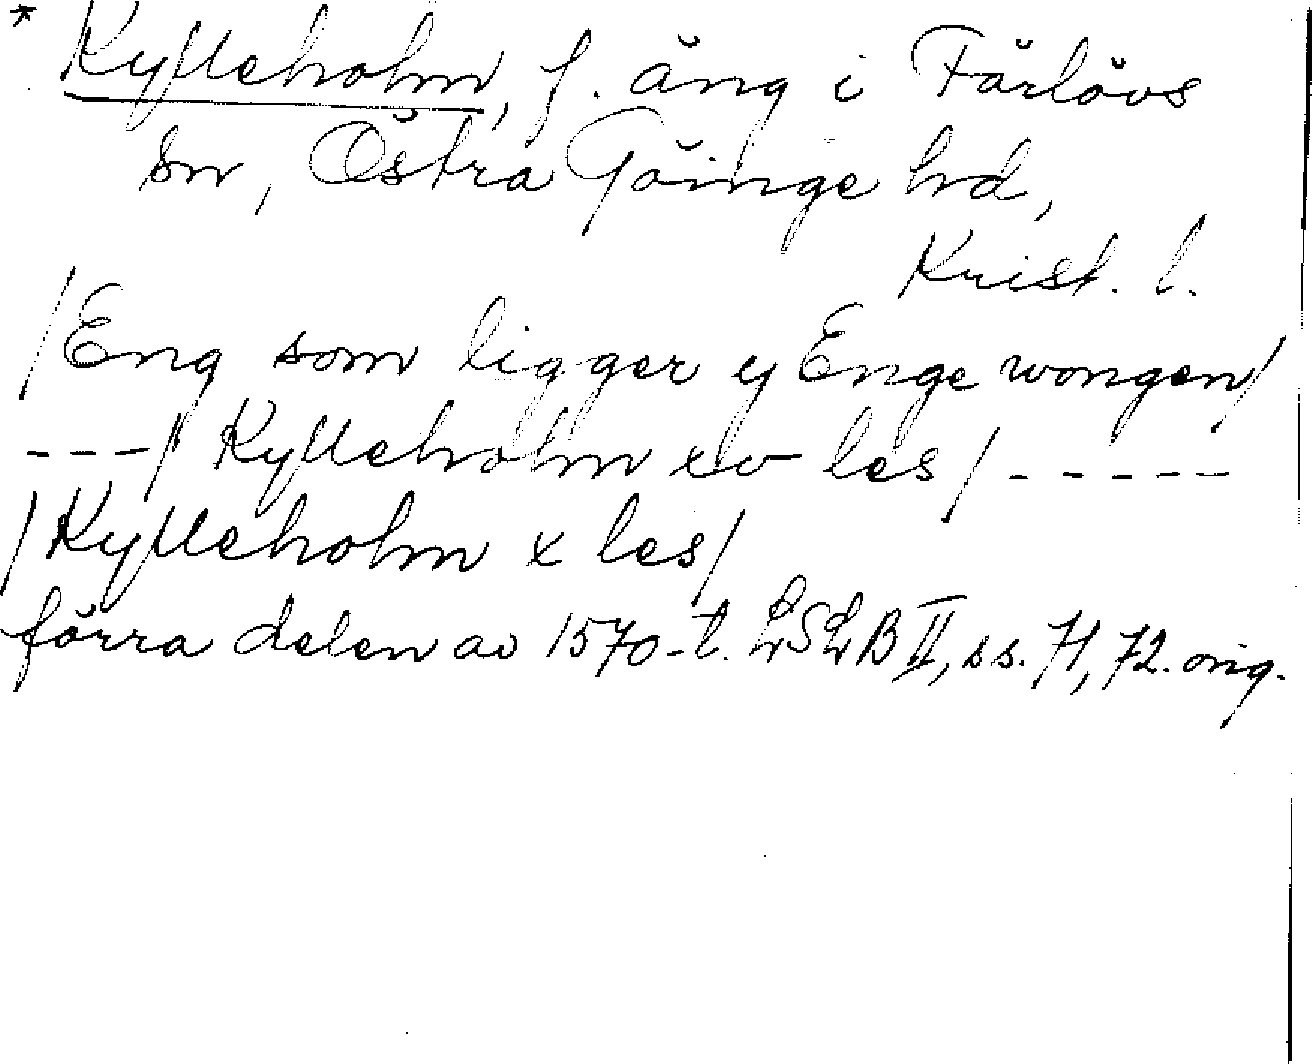 * Kylleholm, f. äng i Färlövs
sn, Östra Göinge hd,
Krist. l.
/Eng som ligger y Enge wongen/
---/ Kylleholm xv les/ -----
/Kylleholm x les/
förra delen av 1570-t. LSLB II, ss. 71, 72. orig.